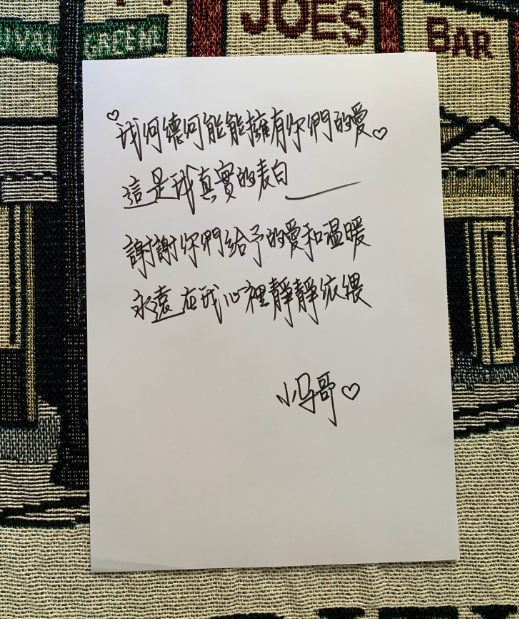 IVAL GREENE
JOES
BAR
♡我何德何能能擁有你們的愛♡
這是我真實的表白——
謝謝你們給予的愛和溫暖
永遠在我心裡靜靜依偎
小馮哥♡